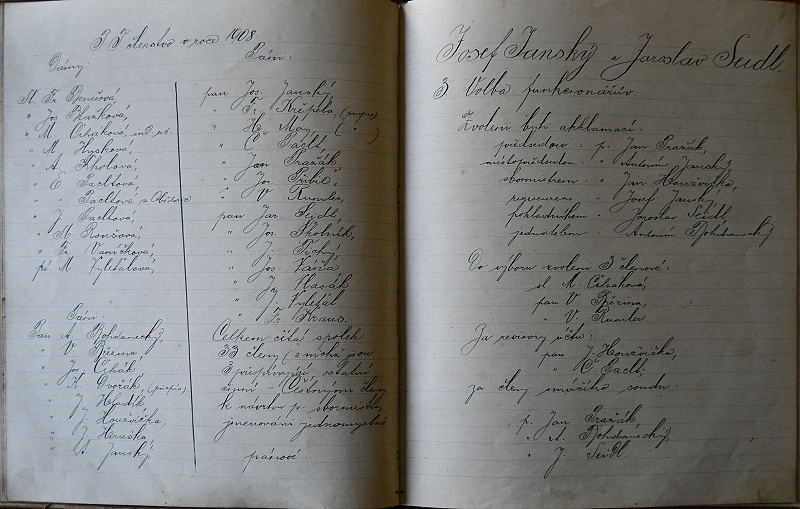 P. T. členstvo v roce 1908
Dámy:
Sl. Fr. Benešová,
" Jos. Hušková,
" M. Čiháková ind. uč.
" M. Hysková,
" A. Kholová,
" E. Pachtová
" " Pachtová z
" J. Pachtová,
" M. Ronšová,
" Fr. Vaníčková,
pí. M. Vyletálová,
Páni:
Pan A. Bohdanecký,
" V. Březina
" Jos. Čihák,
" K. Dvořák, (přispív.)
" J. Hladík
" J. Houžvička
" J. Hruška,
" A. Janský
Páni:
pan Jos. Janský,
" Fr. Křepela (přispív.)
" H. May, ( " )
" Č. Pacll,
" Jan Pražák
" Jos. Přibil,
" V. Rumler,
pan Jar. Seidl,
" Jos. Skolník,
" J. Tichý,
" Jos. Váňa
" J. Vlasák
" J. Vyletál
" Fr. Kraus.
Celkem čítá spolek
33 členy (z nichž jsou
3 přispívající, ostatní
činní – Čestnými členy
k návrhu p. sbormistra
jmenováni jednomyslně
pánové:
Josef Janský a Jaroslav Seidl.
3 Volba funkcionářův.
Zvoleni byli akklamací:
předsedou: p. Jan Pražák,
místopředsedou " Antonín Janský
sbormistrem " Jan Houžvička,
regisseurem " Josef Janský,
pokladníkem " Jaroslav Seidl,
jednatelem " Antonín Bohdanecký
Do výboru zvoleni 3 členové:
sl. M. Čiháková,
pan V. Březina,
" V. Rumler
Za revisory účtů:
pan J. Houžvička,
" Č. Pacll;
za členy smírčího soudu:
p. Jan Pražák,
" A. Bohdanecký,
" J. Seidl.